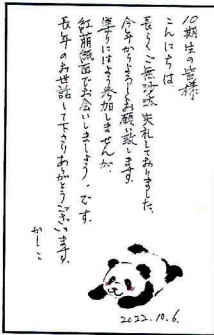 10期生の皆様
こんにちは
長らくご無沙汰失礼しておりました。
今年からよろしくお願い致します。
集りにはよう参加しませんが、
紅萠紙面でお会いしましょう。です。
長年のお世話して下さりありがとうございます。
かしこ
2022.10.6.